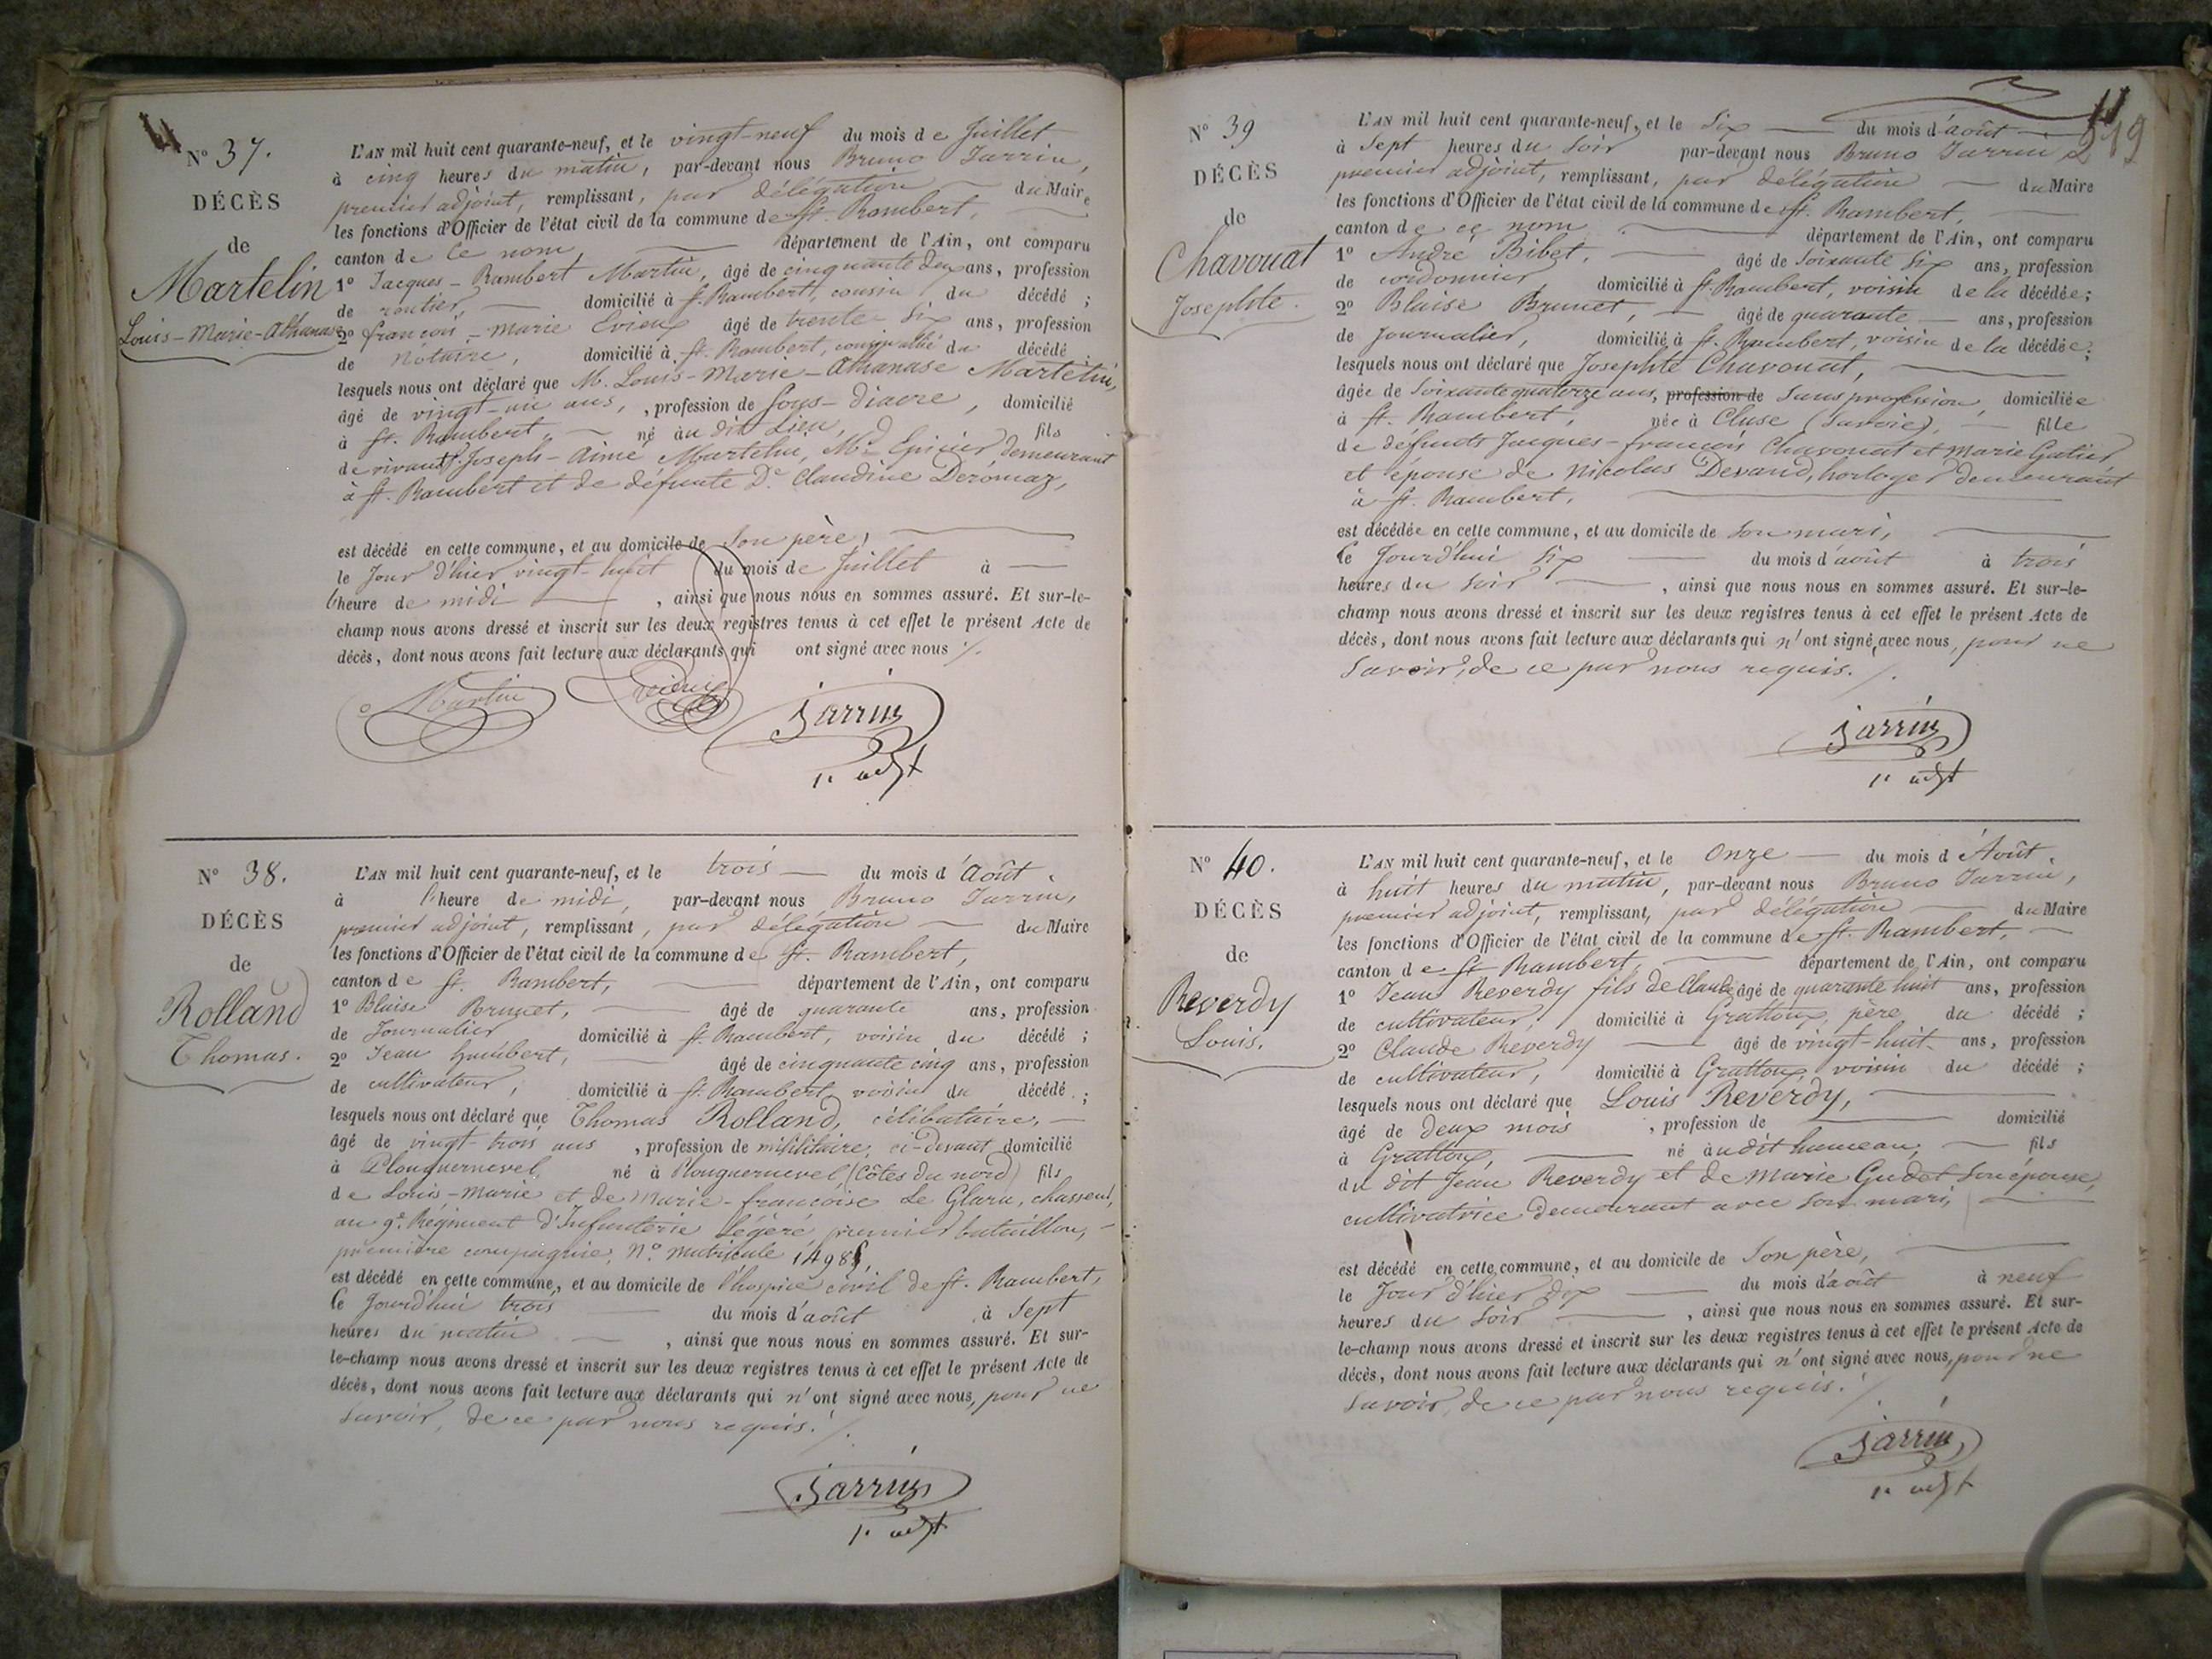 N° 37.
DÉCÈS
de
Martelin
Louis-Marie-Athanase
L'AN mil huit cent quarante-neuf, et le vingt-neuf du mois de Juillet
à cinq heures du matin, par-devant nous Bruno Jarrin,
premier adjoint, remplissant, par délégation du Maire
les fonctions d'Officier de l'état civil de la commune de St. Rambert,
canton de ce nom département de l'Ain, ont comparu
1° Jacques-Rambert Martin, âgé de cinquante deux ans, profession
de rentier, domicilié à St. Rambert, cousin du décédé ;
2° françois-marie Evieux âgé de trente-six ans, profession
de Notaire, domicilié à St. Rambert, cousin allié du décédé
lesquels nous ont déclaré que M. Louis-Marie-Athanase Martelin,
âgé de vingt-un ans, , profession de Sous-diacre, domicilié
à St. Rambert, né au dit Lieu, fils
de vivant S. Joseph-Aimé Martelin, Md. Epicier demeurant
à St. Rambert et de défunte De. Claudine Deromaz,
est décédé en cette commune, et au domicile de son père,
le Jour d'hier vingt-huit du mois de Juillet à
l'heure de midi , ainsi que nous nous en sommes assuré. Et sur-le-
champ nous avons dressé et inscrit sur les deux registres tenus à cet effet le présent Acte de
décès, dont nous avons fait lecture aux déclarants qui ont signé avec nous ./.
Martin Evieux Jarrin
1er adjt
N° 38.
DÉCÈS
de
Rolland
Thomas.
L'AN mil huit cent quarante-neuf, et le trois du mois d'Août,
à l'heure de midi, par-devant nous Bruno Jarrin,
premier adjoint, remplissant, par délégation du Maire
les fonctions d'Officier de l'état civil de la commune de St. Rambert,
canton de St. Rambert, département de l'Ain, ont comparu
1° Blaise Brunet, âgé de quarante ans, profession
de Journalier domicilié à St. Rambert, voisin du décédé ;
2° Jean humbert, âgé de cinquante cinq ans, profession
de cultivateur, domicilié à St. Rambert, voisin du décédé ;
lesquels nous ont déclaré que Thomas Rolland, célibataire,
âgé de vingt-trois ans , profession de militaire, ci-devant domicilié
à Plouguernevel, né à Plouguernevel, (Côtes du nord) fils
de Louis-Marie et de Marie-françoise Le Glaru, chasseur,
au 9e. Régiment d'Infanterie Légère, premier bataillon,
première compagnie, N° matricule 1498
est décédé en cette commune, et au domicile de l'hospice civil de St. Rambert,
le Jourd'hui trois du mois d'août à sept
heures du matin , ainsi que nous nous en sommes assuré. Et sur-
le-champ nous avons dressé et inscrit sur les deux registres tenus à cet effet le présent Acte de
décès, dont nous avons fait lecture aux déclarants qui n'ont signé avec nous, pour ne
savoir, de ce par nous requis. ./.
Jarrin
1er adjt
219
N° 39
DÉCÈS
de
Chavouat
Josephte.
L'AN mil huit cent quarante-neuf, et le Six du mois d'août
à Sept heures du soir par-devant nous Bruno Jarrin
premier adjoint, remplissant, par délégation du Maire
les fonctions d'Officier de l'état civil de la commune de St. Rambert,
canton de ce nom département de l'Ain, ont comparu
1° André Bibet, âgé de soixante six ans, profession
de cordonnier domicilié à St. Rambert, voisin de la décédée;
2° Blaise Brunet, âgé de quarante ans, profession
de Journalier, domicilié à St. Rambert, voisin de la décédée;
lesquels nous ont déclaré que Josephte Chavouat,
âgée de soixante quatorze ans, profession de sans profession, domiciliée
à St. Rambert, née à Cluse (Savoie), fille
de défunts Jacques-françois Chavouat et Marie Gatier
et épouse de Nicolas Devand, horloger demeurant
à St. Rambert,
est décédée en cette commune, et au domicile de son mari,
le Jourd'hui Six du mois d'août à trois
heures du soir , ainsi que nous nous en sommes assuré. Et sur-le-
champ nous avons dressé et inscrit sur les deux registres tenus à cet effet le présent Acte de
décès, dont nous avons fait lecture aux déclarants qui n'ont signé avec nous, pour ne
savoir, de ce par nous requis. ./.
Jarrin
1er adjt
N° 40.
DÉCÈS
de
Reverdy
Louis.
L'AN mil huit cent quarante-neuf, et le Onze du mois d'Août,
à huit heures du matin, par-devant nous Bruno Jarrin,
premier adjoint, remplissant, par délégation du Maire
les fonctions d'Officier de l'état civil de la commune de St. Rambert,
canton de St. Rambert, département de l'Ain, ont comparu
1° Jean Reverdy fils de Claude âgé de quarante huit ans, profession
de cultivateur, domicilié à Grattoux, père du décédé ;
2° Claude Reverdy âgé de vingt-huit ans, profession
de cultivateur, domicilié à Grattoux, voisin du décédé ;
lesquels nous ont déclaré que Louis Reverdy,
âgé de deux mois , profession de domicilié
à Grattoux, né audit hameau, fils
du dit Jean Reverdy et de Marie Gudet son épouse,
cultivatrice demeurant avec son mari,
est décédé en cette commune, et au domicile de Son père,
le Jour d'hier dix du mois d'août à neuf
heures du soir , ainsi que nous nous en sommes assuré. Et sur-
le-champ nous avons dressé et inscrit sur les deux registres tenus à cet effet le présent Acte de
décès, dont nous avons fait lecture aux déclarants qui n'ont signé avec nous, pour ne
savoir, de ce par nous requis. ./.
Jarrin
1er adjt